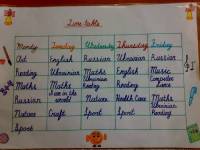 Time table
Monday Tuesday Wednesday Thursday Friday
Art English Russian Ukrainian Russian
Reading Ukrainian Maths English Music
Maths Maths Ukrainian Reading Computer
Russian I am in the world Reading Maths Maths
Nature Craft Nature Health Care Ukrainian
Sport Sport Sport Reading